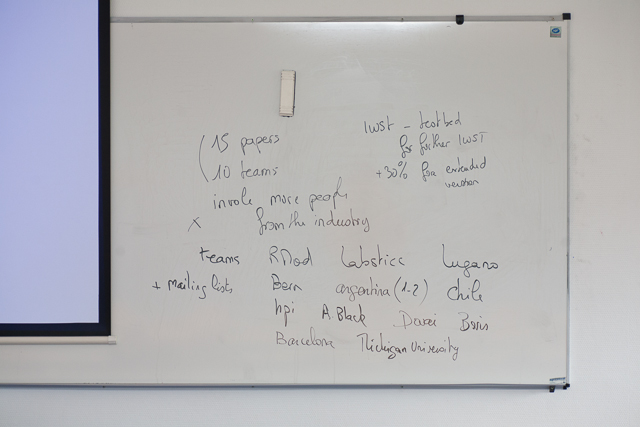 15 papers
10 teams
involve more people
x from the industry
IWST - testbed
for further IWST
+30% for a extended
version
teams RMod Labsticc Lugano
+ Mailing lists Bern argentina (1-2) chile
hpi A Black Boris
Barcelona Michigan University